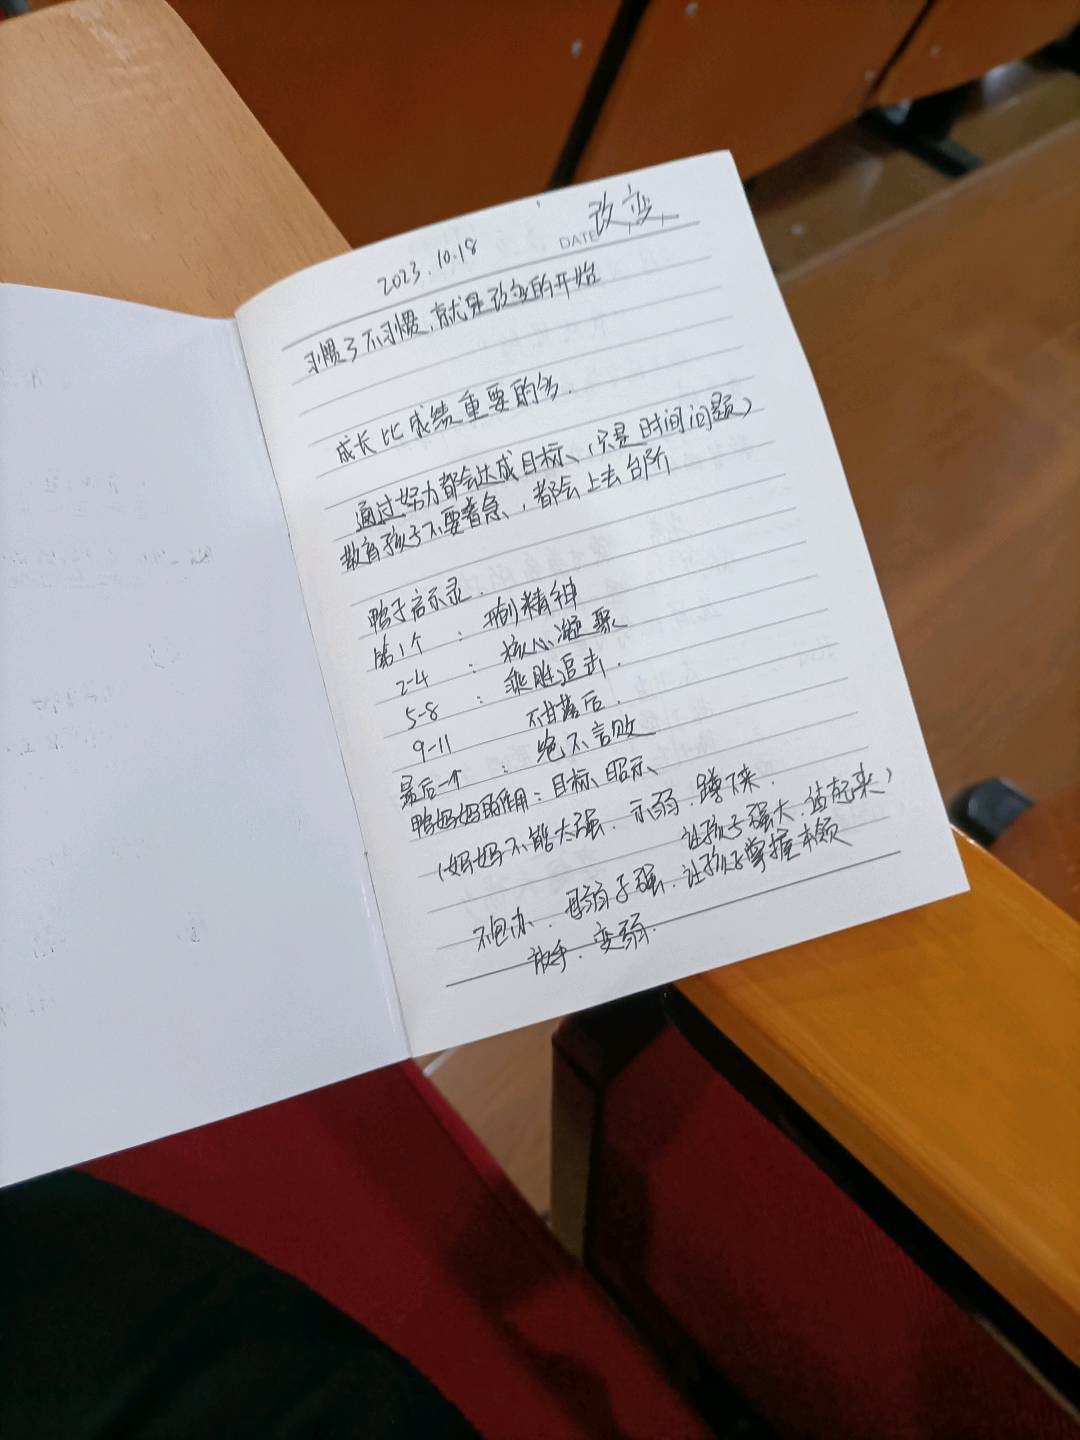 改变
DATE
2023.10.18
习惯了不习惯,就是改变的开始
成长比成绩重要的多.
通过努力都会达成目标、(只是时间问题)
教育孩子不要着急,都会上去台阶
鸭子启示录.
第1个 : 开创精神
2-4 : 核心凝聚
5-8 : 乘胜追击.
9-11 不甘落后.
最后一个 : 绝不言败
鸭妈妈的作用:目标、昭示
(妈妈不能太强、示弱、蹲下来.
让孩子强大、站起来)
不包办、母弱子强.让孩子掌握本领
放手.变弱.